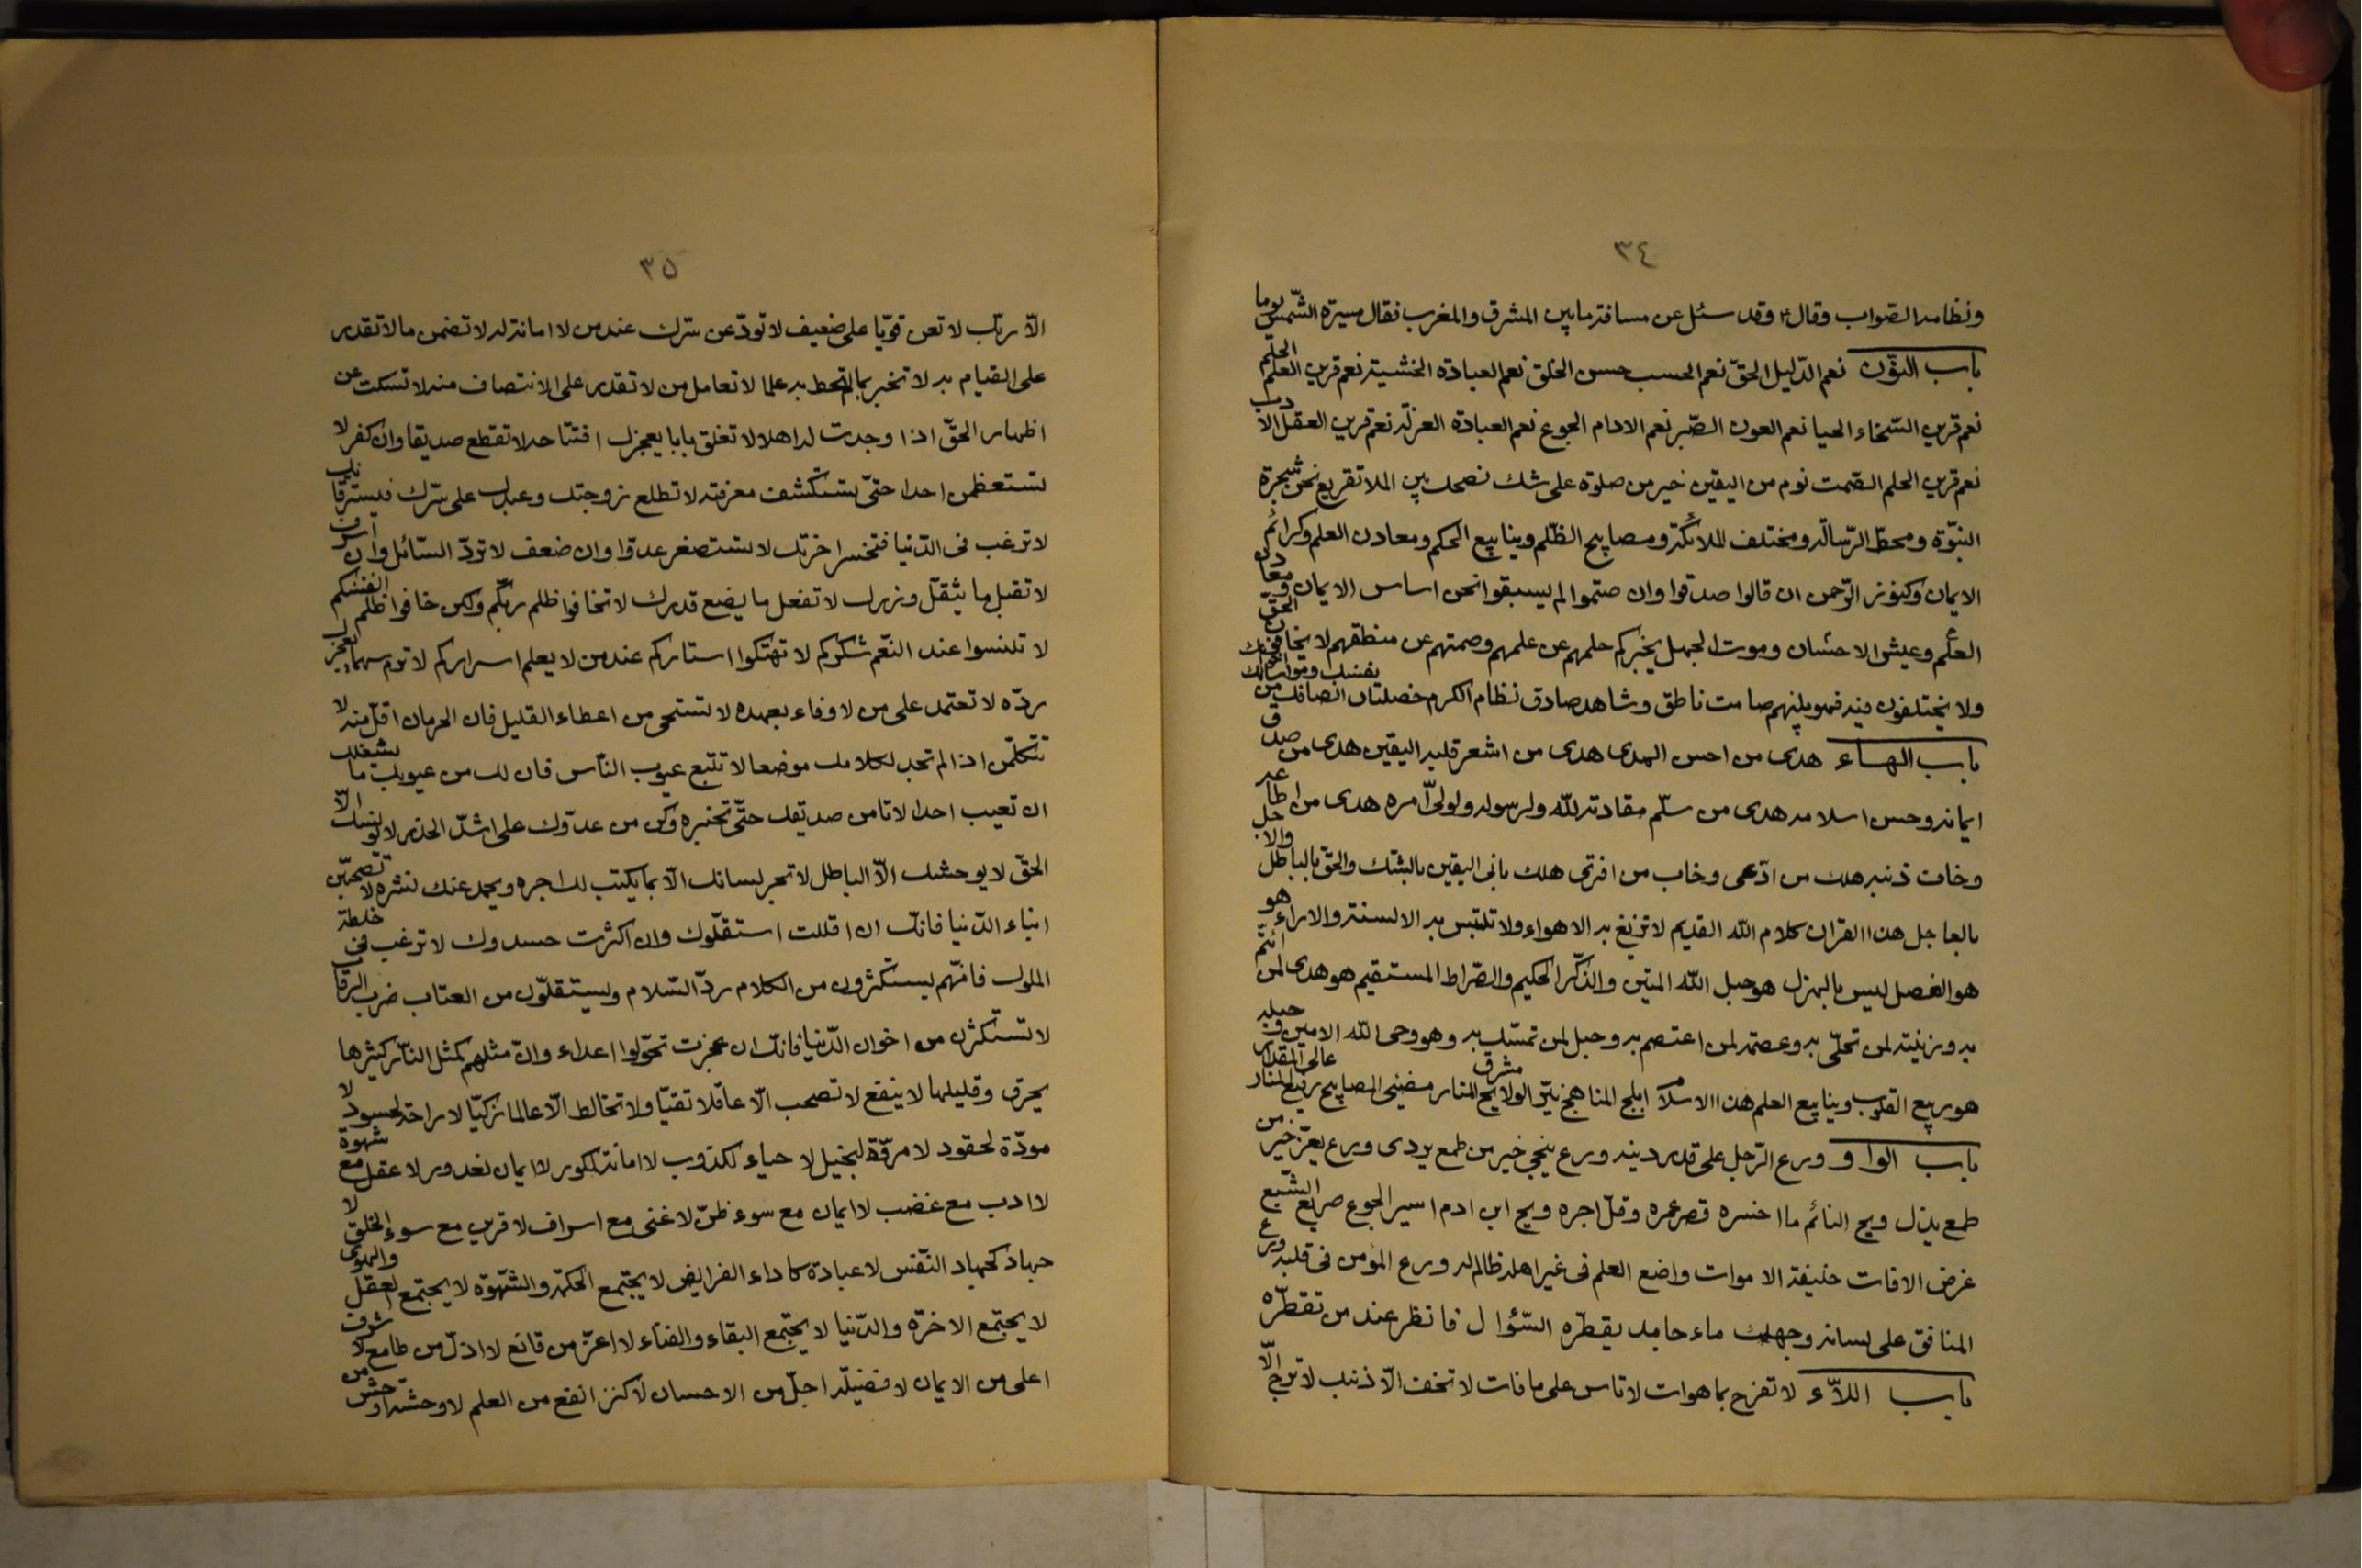 ٣٤
ونظامه الصّواب وقال ؑ وقد سئل عن مسافة ما بين المشرق والمغرب فقال مسيرة الشّمس يوما
باب النوّن نعم الدّليل الحقّ نعم الحسب حسن الخلق نعم العبادة الخشية نعم قرين العلم الحلم
نعم قرين السّخاء الحيا نعم العون الصّبر نعم الادام الجوع نعم العبادة العزلة نعم قرين العقل الادب
نعم قرين الحلم الصّمت نوم من اليقين خير من صلوة على شك نصحك بين الملا تقريع نحن شجرة
النبوّة ومحطّ الرّسالة ومختلف الملائكة ومصابيح الظّلم وينابيع الحكم ومعادن العلم وكرائم
الايمان وكنوز الرّحمن ان قالوا صدقوا وان صمتوا لم يسبقوا نحن اساس الايمان ومعادن
العلم وعيش الاحسان وموت الجهل يخبركم حلمهم عن علمهم وصمتهم عن منطقهم لا يخافون الحقّ
ولا يختلفون فيه فهو بينهم صامت ناطق وشاهد صادق نظام الكرم خصلتان انصافك من نفسك ومواساتك
باب الهاء هدى من احسن الهدى هدى من اشعر قلبه اليقين هدى من صدق
ايمانه وحسن اسلامه هدى من سلّم مقادته للّه ولرسوله ولولىّ امره هدى من اطاع
وخاف ذنبه هلك من ادّعى وخاب من افترى هلك بانى اليقين بالشك والحقّ بالباطل والاجل
بالعاجل هذا القران كلام اللّه القديم لا تزيغ به الاهواء ولا تلتبس به الالسنة والاراء هو
هو الفصل ليس بالهزل هو حبل اللّه المتين والذّكر الحكيم والصّراط المستقيم هو هدى لمن ائتمّ
به وزينة لمن تحلّى به وعصمة لمن اعتصم به وحبل لمن تمسّك به وهو وحى اللّه الامين وحبله
هو ربيع القلوب وينابيع العلم هذا الاسلام ابلج المناهج نيّر الولايج مشرق المنار مضيئ المصابيح رفيع المنار عالى المقدار
باب الواو ورع الرّجل على قدر دينه ورع ينجي خير من طمع يردى ورع يعزّ خير من
طمع يذلّ ويح النائم ما اخسره قصر عمره وقلّ اجره ويح ابن ادم اسير الجوع صريع الشبع
غرض الافات خليفة الاموات واضع العلم فى غير اهله ظالم له ورع المؤمن فى قلبه ورع
المنافق على لسانه وجهك ماء جامد يقطّره السّؤال فانظر عند من تقطّره
باب اللاّء لا تفرح بما هوات لا تاس على ما فات لا تخف الّا ذنبك لا ترج الّا
٣٥
الّا ربّك لا تعن قويّا على ضعيف لا تودّعن سّرك عند من لا امانة له لا تضمن ما لا تقدر
على القيام به لا تخبر بما لم تحط به علما لا تعامل من لا تقدر على الانتصاف منه لا تسكت عن
اظهار الحقّ اذا وجدت له اهلا لا تغلق بابا يعجزك افتتاحه لا تقطع صديقا وان كفر لا
تستعظمن احدا حتىّ تستكشف معرفته لا تطلع زوجتك وعبدك على سّرك فيسترقّانك
لا ترغب فى الدّنيا فتخسر اخرتك لا تستصغر عدوّا وان ضعف لا تردّ السّائل وان اسرف
لا تقبل ما يثقّل وزرك لا تفعل ما يضع قدرك لا تخافوا ظلم ربّكم ولكن خافوا ظلم انفسكم
لا تنسوا عند النّعم شكركم لا تهتكوا استاركم عند من لا يعلم اسراركم لا ترم سهما يعجزك
ردّه لا تعتمد على من لا وفاء بعهده لا تستحى من اعطاء القليل فان الحرمان اقلّ منه لا
تتكلّمن اذا لم تجد لكلامك موضعا لا تتبع عيوب النّاس فان لك من عيوبك ما يشغلك
ان تعيب احدا لا تامن صديقك حتّى تختبره وكن من عدوّك على اشدّ الحذر لا يونسك الّا
الحقّ لا يوحشك الّا الباطل لا تجر لسانك الّا بما يكتب لك اجره ويجمل عنك نشره لا تصحبّن
ابناء الدّنيا فانّك ان اقللت استقلّوك وان اكثرت حسدوك لا ترغب فى خلطة
الملوك فانّهم يستكثرون من الكلام ردّ السّلام ويستقلّون من العتاب ضرب الرقاب
لا تستكثرن من اخوان الدّنيا فانّك ان عجزت تحوّلوا اعداء وانّ مثلهم كمثل النّار كثيرها
يحرق وقليلها لا ينفع لا تصحب الّا عاقلا تقيّا ولا تخالط الّا عالما زكيّا لا راحة لحسود لا
مودّة لحقود لا مروّة لبخيل لا حياء لكذوب لا امانة لمكور لا ايمان لغدور لا عقل مع شهوة
لا ادب مع غضب لا ايمان مع سوء ظنّ لا غنى مع اسراف لا قرين مع سوء الخلق لا
جهاد كجهاد النّفس لا عبادة كاداء الفرايض لا يجتمع الحكمة والشّهوة لا يجتمع العقل والهوى
لا يجتمع الاخرة والدّنيا لا يجتمع البقاء والفناء لا اعزّ من قانع لا اذلّ من طامع لا شرف
اعلى من الايمان لا فضيلة اجلّ من الاحسان لا كنز انفع من العلم لا وحشة اوحش من